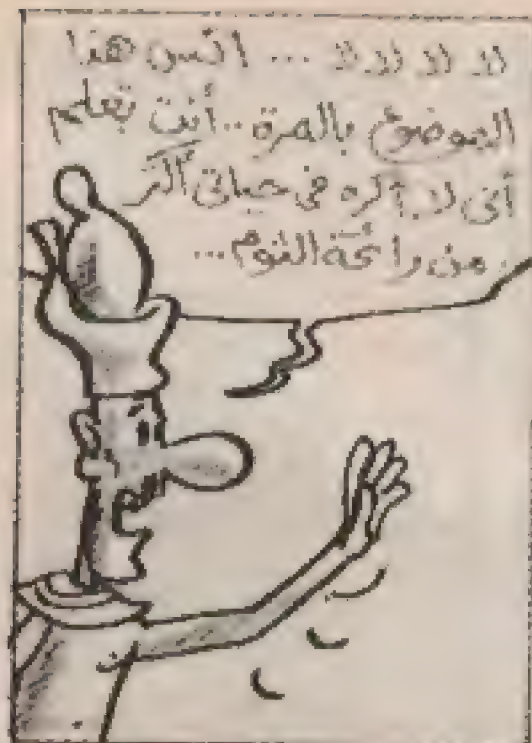 لا لا لا لا ... انس هذا
الموضوع بالمرة .. أنت تعلم
أنى لا أكره فى حياتى أكثر
من رائحة الثوم ...